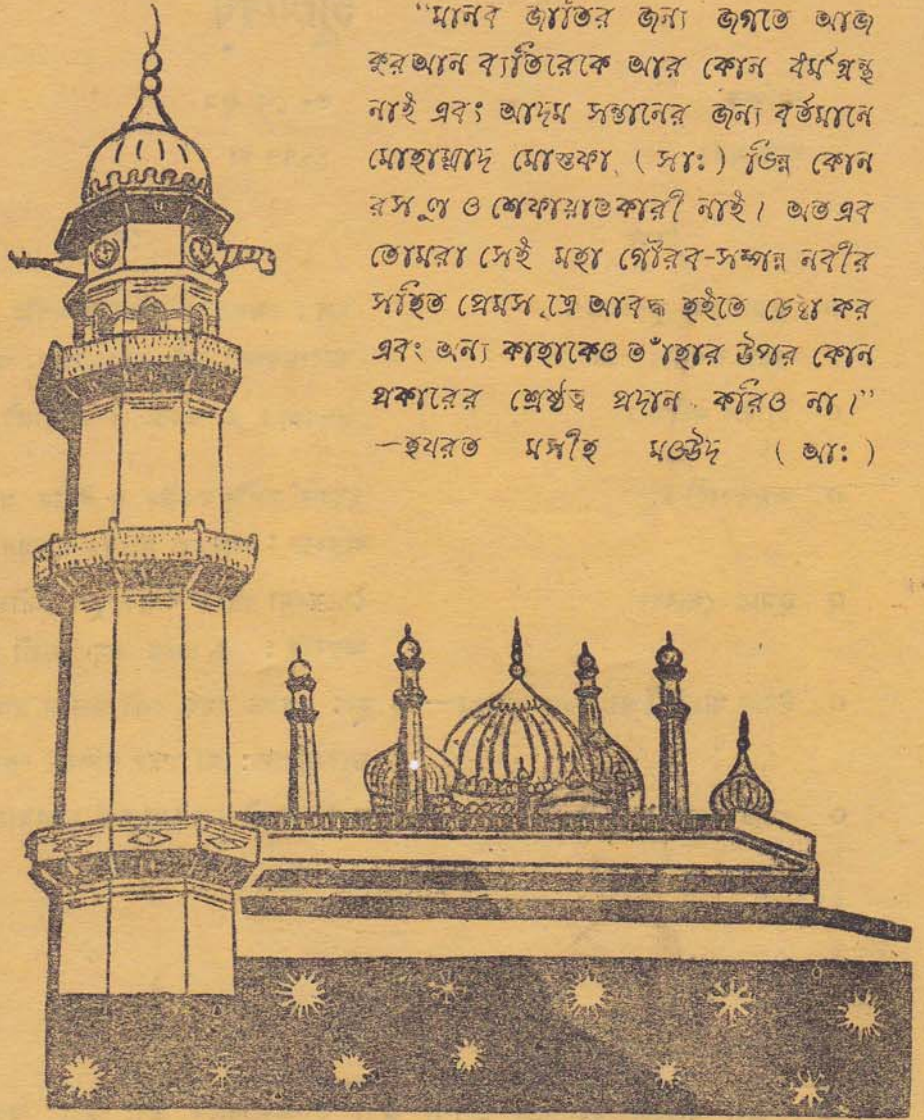 "মানব জাতির জন্য জগতে আজ
কুরআন ব্যতিরেকে আর কোন ধর্মগ্রন্থ
নাই এবং আদম সন্তানের জন্য বর্তমানে
মোহাম্মাদ মোস্তফা (সাঃ) ভিন্ন কোন
রসূল ও শেফায়াতকারী নাই। অতএব
তোমরা সেই মহা গৌরব-সম্পন্ন নবীর
সহিত প্রেমসূত্রে আবদ্ধ হইতে চেষ্টা কর
এবং অন্য কাহাকেও তাঁহার উপর কোন
প্রকারের শ্রেষ্ঠত্ব প্রদান করিও না।"
—হযরত মসীহ মওউদ (আঃ)